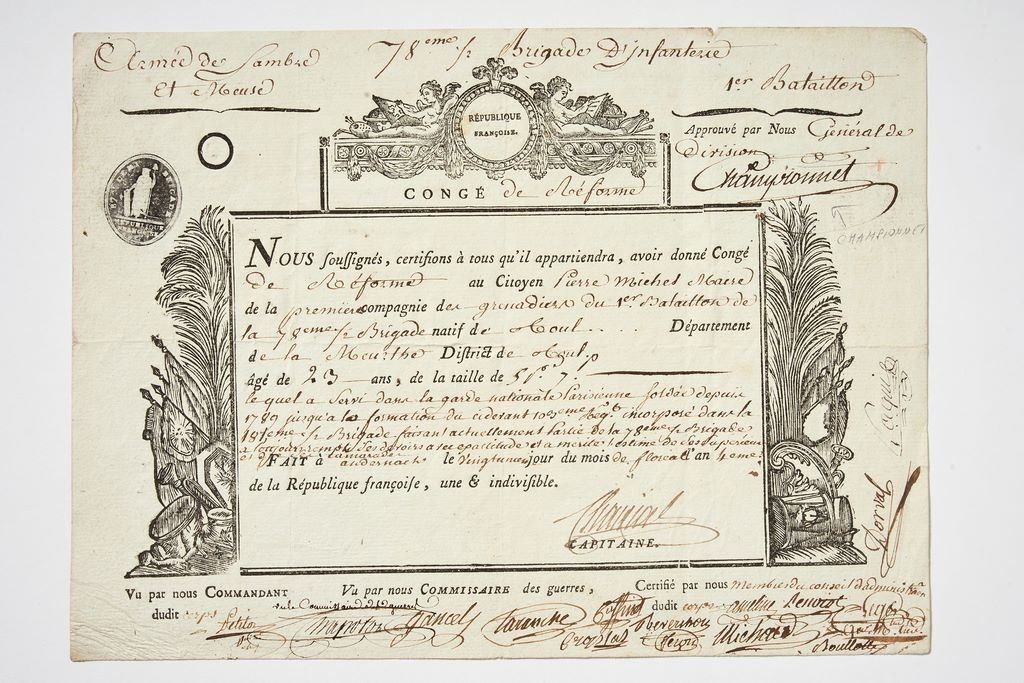 Armée de Sambre
Et Meuse
78eme 1/2 Brigade D'Infanterie
1er Bataillon
RÉPUBLIQUE
FRANÇOISE.
CONGÉ de Réforme
Approuvé par Nous Général de
Division
Championnet
CHAMPIONNET
NOUS souſſignés, certifions à tous qu'il appartiendra, avoir donné Congé
de Réforme au Citoyen Pierre Michel Maire
de la premiere compagnie des grenadiers du 1er Bataillon de
la 78eme 1/2 Brigade natif de Toul .. . . Département
de la Meurthe Diſtrict de Toul
âgé de 23 ans, de la taille de 5 pi 7 po
le quel a servi dans la garde nationale Parisienne soldée depuis
1789 jusqu'a la formation du ciderant Regt incorporé dans la
1/2 Brigade faisant actuellement Partie de la 78eme 1/2 Brigade
a toujours rempli ses devoirs avec exactitude et a mérité l'estime de ses supérieurs
et de ses camarades
FAIT à andernach le vingtunieme jour du mois de floreal l'an 4eme
de la République françoiſe, une & indiviſible.
CAPITAINE.
Dorval
Vu par nous COMMANDANT
dudit corps
Vu par nous COMMISSAIRE des guerres,
Certifié par nous Membres du conseil d'administration
dudit corps
Michaud